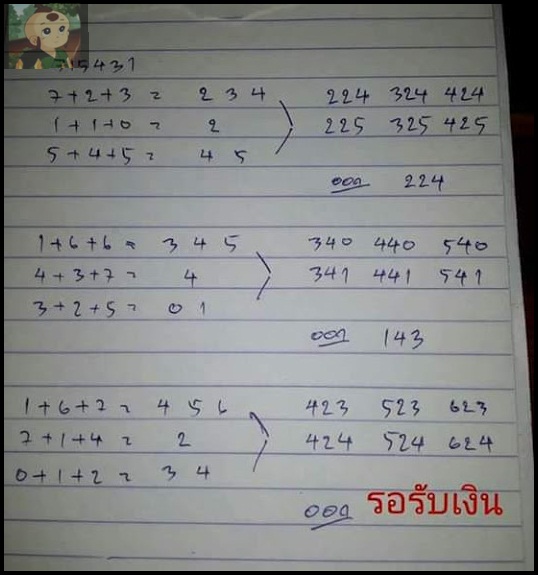 715431
7+2+3 = 2 3 4 224 324 424
1+1+0 = 2 225 325 425
5+4+5 = 4 5
ออก 224
1+6+6 = 3 4 5 340 440 540
4+3+7 = 4 341 441 541
3+2+5 = 0 1
ออก 143
1+6+7 = 4 5 6 423 523 623
7+1+4 = 2 424 524 624
0+1+2 = 3 4
ออก รอรับเงิน